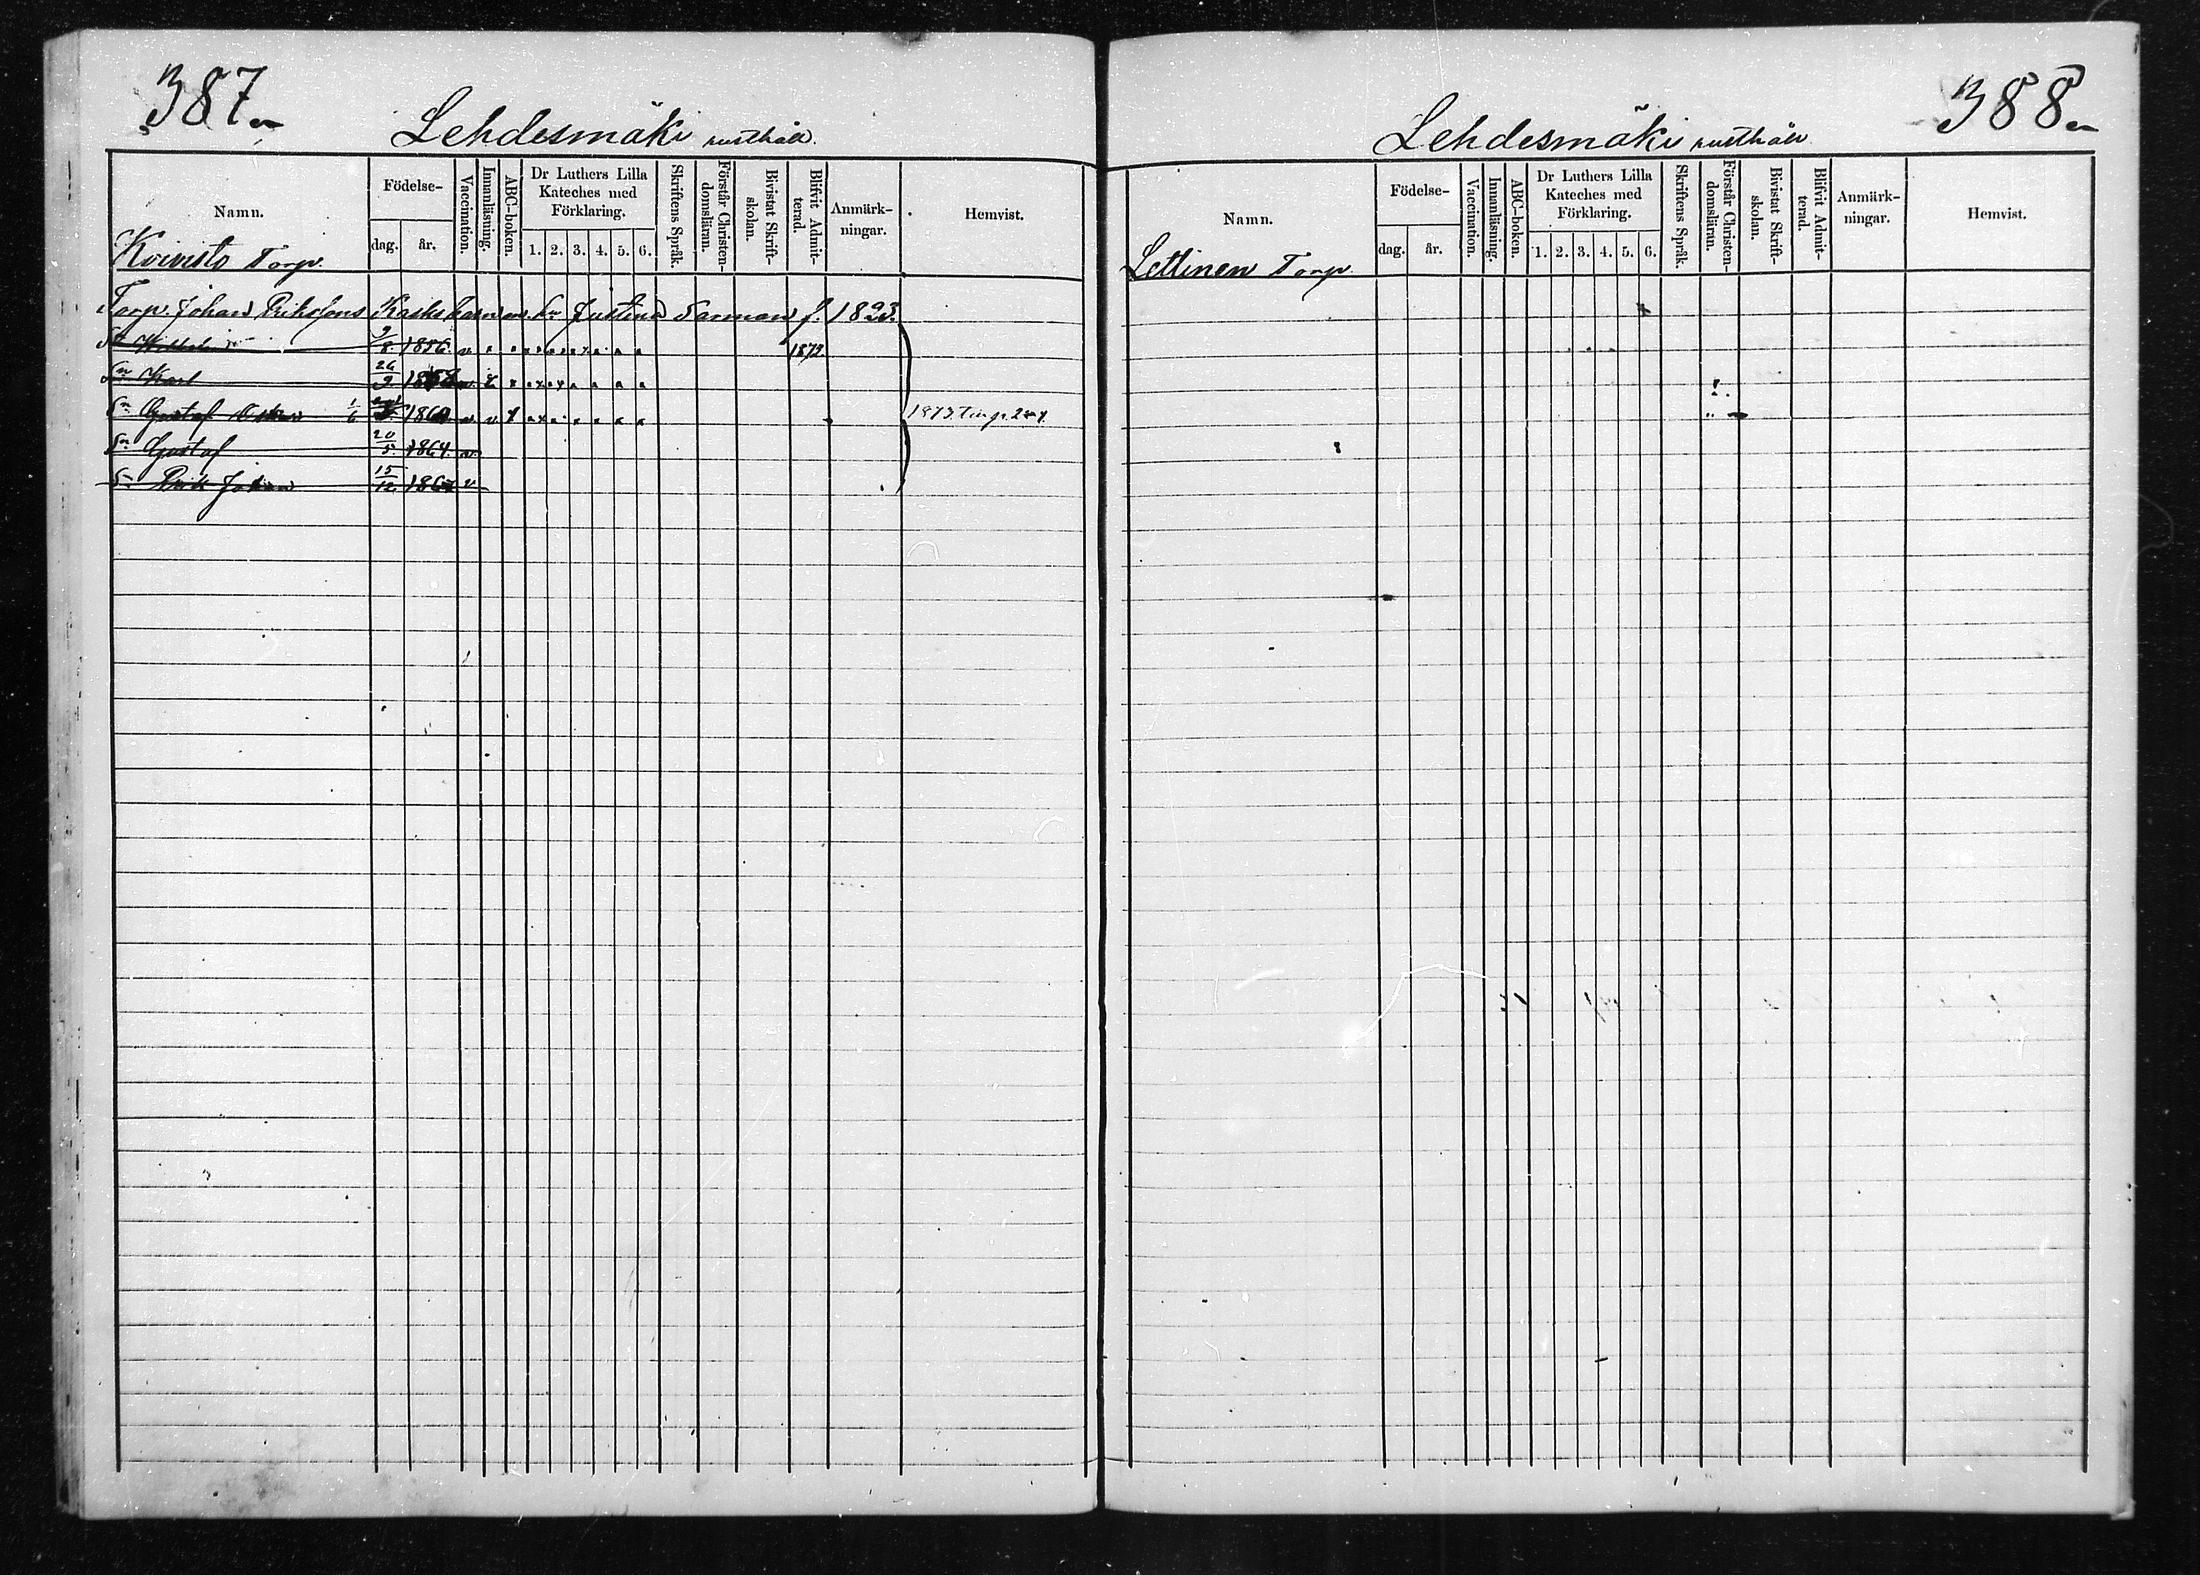 387.
Lehdesmäki rusthåll.
Namn.
Födelse-
dag. år.
Vaccination.
Innanläsning.
ABC-boken.
Dr Luthers Lilla Kateches med Förklaring.
1. 2. 3. 4. 5. 6.
Skriftens Språk.
Förstår Christen-domsläran.
Bivistat Skrift-skolan.
Blifvit Admit-terad.
Anmärk-ningar.
Hemvist.
Koivisto Torp.
Torp. Johan Erikssons Kasks barn m. hu Justina Sarman f. 1823.
Sn Wilhelm 9/8 1856. v 1873
Sn Karl 26/9 v
Sn Gustaf Oskar v 1873
Sn Gustaf 20/5 1864. v
Sn Erik Johan 15/12 v
388.
Lehdesmäki rusthåll
Namn.
Födelse-
dag. år.
Vaccination.
Innanläsning.
ABC-boken.
Dr Luthers Lilla Kateches med Förklaring.
1. 2. 3. 4. 5. 6.
Skriftens Språk.
Förstår Christen-domsläran.
Bivistat Skrift-skolan.
Blifvit Admit-terad.
Anmärk-ningar.
Hemvist.
Lettinen Torp.